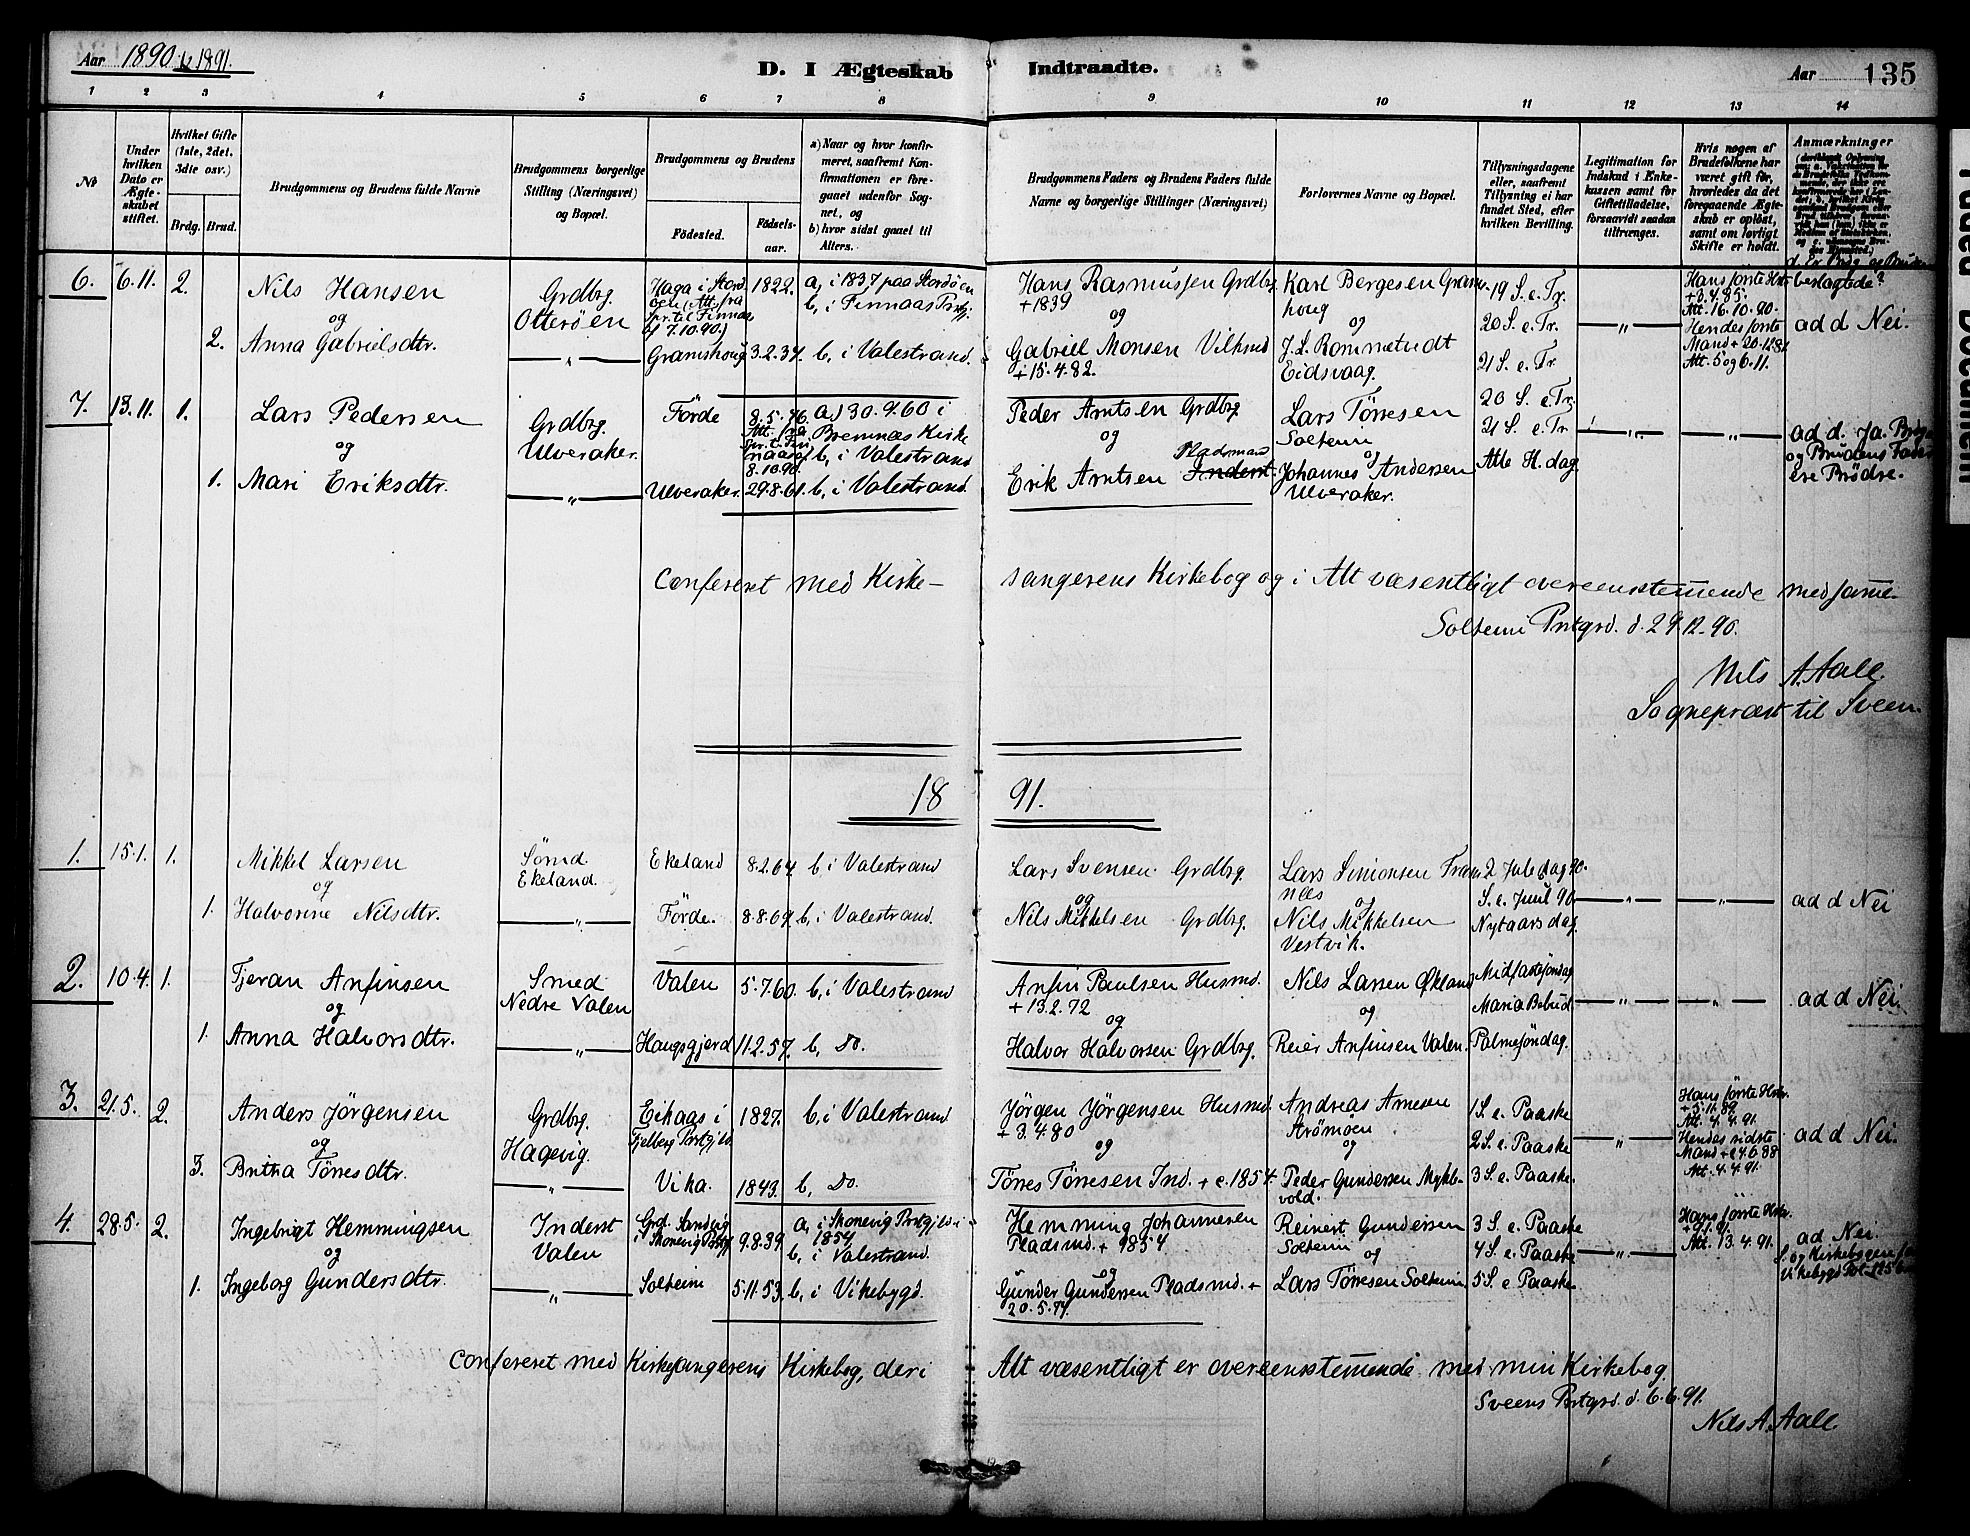 Aar 1890 & 1891.
D. I Ægteskab Indtraadte.
Aar 135
1 2 3 4 5 6 7 8 9 10 11 12 13 14
№
Under hvilken Dato er Ægteskabet stiftet.
Hvilket Gifte (1ste, 2det, 3die osv.)
Brdg. Brud.
Brudgommens og Brudens fulde Navne
Brudgommens borgerlige Stilling (Næringsvei) og Bopæl.
Brudgommens og Brudens
Fødested.
Fødselsaar.
a) Naar og hvor konfirmeret, saafremt Konfirmationen er foregaaet udenfor Sognet, og
b) hvor sidst gaaet til Alters.
Brudgommens Faders og Brudens Faders fulde Navne og borgerlige Stillinger (Næringsvei)
Forlovernes Navne og Bopæl.
Tillysningsdagene eller, saafremt Tillysning ei har fundet Sted, efter hvilken Bevilling.
Legitimation for Indskud i Enkekassen samt for Giftetilladelse, forsaavidt saadan tiltrænges.
Hvis nogen af Brudefolkene har været gift før, hvorledes da det foregaaende Ægteskab er opløst, samt om lovligt Skifte er holdt.
Anmærkninger
d. Er Brdg. og Bruden beslægtede?
6. 6.11. 2. Nils Hansen
Grdbrg. Otterøen
Haga i Stord.
1822.
a, i 1837 paa Stordøen
b, i Finnaas Prstgj.
Hans Rasmussen Grdbr.
+1839
Karl Bergesen Gramshoug
19 S. e. Tr.
Hans første Hstr.
+3.4.85.
Att. 16.10.90.
og
2. Anna Gabrielsdtr.
—„— Gramshoug 3.2.37. b, i Valestrand.
og
Gabriel Monsen
+15.4.82.
og
J. L. Rommetvedt
Eidsvaag.
20 S. e. Tr.
21 S. e. Tr.
—„—
Hendes første Mand + 20.12.81
Att. 5 og 6.11.
ad d Nei.
7. 13.11. 1. Lars Pedersen
Grdbrg. Ulveraker.
Förde
8.5.76.
Att. fra
8.10.90.
a) 30.9.60 i
Bremnæs Kirke
b, i Valestrand
Peder Arntsen Grdbrg.
Lars Törresen
Soltem
20 S. e. Tr.
21 S. e. Tr
—„— —„—
ad d. Ja. Brdg.
og Brudens Fader
ere Brødre.
og
1. Mari Eriksdtr.
—„— Ulveraker. 29.8.61. b, i Valestrand.
og
Erik Arntsen Inderst. Pladsmand
og
Johannes Andersen
Ulveraker.
Alle H. dag.
Conferet med Kirke- sangerens Kirkebog og i Alt væsentligt overeensstemmende med samme.
Soltem Prstgrd. d. 29.12.90.
Nils A. Aall.
Sognepræst til Sveen.
18 91.
1. 15.1. 1. Mikkel Larsen
Ekeland.
Ekeland 8.2.64. b, i Valestrand
Lars Svensen Grdbrg.
Lars Simonsen Framnæs
2 Juledag 90.
og
1. Halvorine Nilsdtr.
—„— Förde. 8.8.69. b, i Valestrand.
og
Nils Mikkelsen Grdbrg.
og
Nils Mikkelsen
Vestvik.
S. e. Juul 90
Nytaarsdag.
—„— —„— ad d Nei
2. 10.4. 1. Tjeran Anfinsen
Smed
Nedre Valen
Valen 5.7.60. b, i Valestrand
Anfin Paulsen Husmd.
+ 13.2.72
Nils Larsen Økland
Midfastesöndag
Maria Bebud.
—„— —„— ad d Nei.
og
1. Anna Halvorsdtr.
—„— Haugsgjerd 11.2.57. b, Do.
og
Halvor Halvorsen Grdbrg.
og
Reier Anfinsen Valen.
Palmesöndag.
3. 21.5. 2. Anders Jörgensen
Grdbrg.
Hagevig.
Eikaas i
Fjelberg Prstgjld.
1827. b, i Valestrand
Jörgen Jörgensen Husmd.
+ 3.4.80
Andreas Arnesen
Strömöen
1 S. e. Paaske
2 S. e. Paaske
Hans første Hstr.
+ 5.11.89.
Att. 4.4.91.
og
3. Britha Törresdtr.
—„— Vika. 1843. b, Do.
og
Törres Törresen Ind. + c. 1854.
og
Peder Gundersen Myklevold.
3 S. e. Paaske.
—„—
Hendes sidste
Mand + c 4.6.88
Att. 4.4.91.
ad d Nei.
4. 28.5. 2. Ingebrigt Hemmingsen
Inderst
Valen
Grd. Sandvig
i Skonevig Prstgj.
9.8.39.
a, i Skonevig Prstgjld i 1854.
b, i Valestrand.
Hemming Johannesen
Pladsmd. + 1854
Reinert Gundersen
Soltem
3 S. e. Paaske
4 S. e. Paaske
—„—
Hans første Hstr.
+ 9.1.91.
Att. 13.4.91.
ad Nei.
og
1. Ingeborg Gundersdtr.
—„— Soltem 5.11.53. b, i Vikebygd.
og
Gunder Gundersen Pladsmd. +
og
Lars Törresen Soltem
5 S. e. Paaske
Conferet med Kirkesangerens Kirkebog, der i Alt væsentligt er overeensstemmende med min Kirkebog.
Sveens Prstgrd. d. 6.6.91.
Nils A. Aall